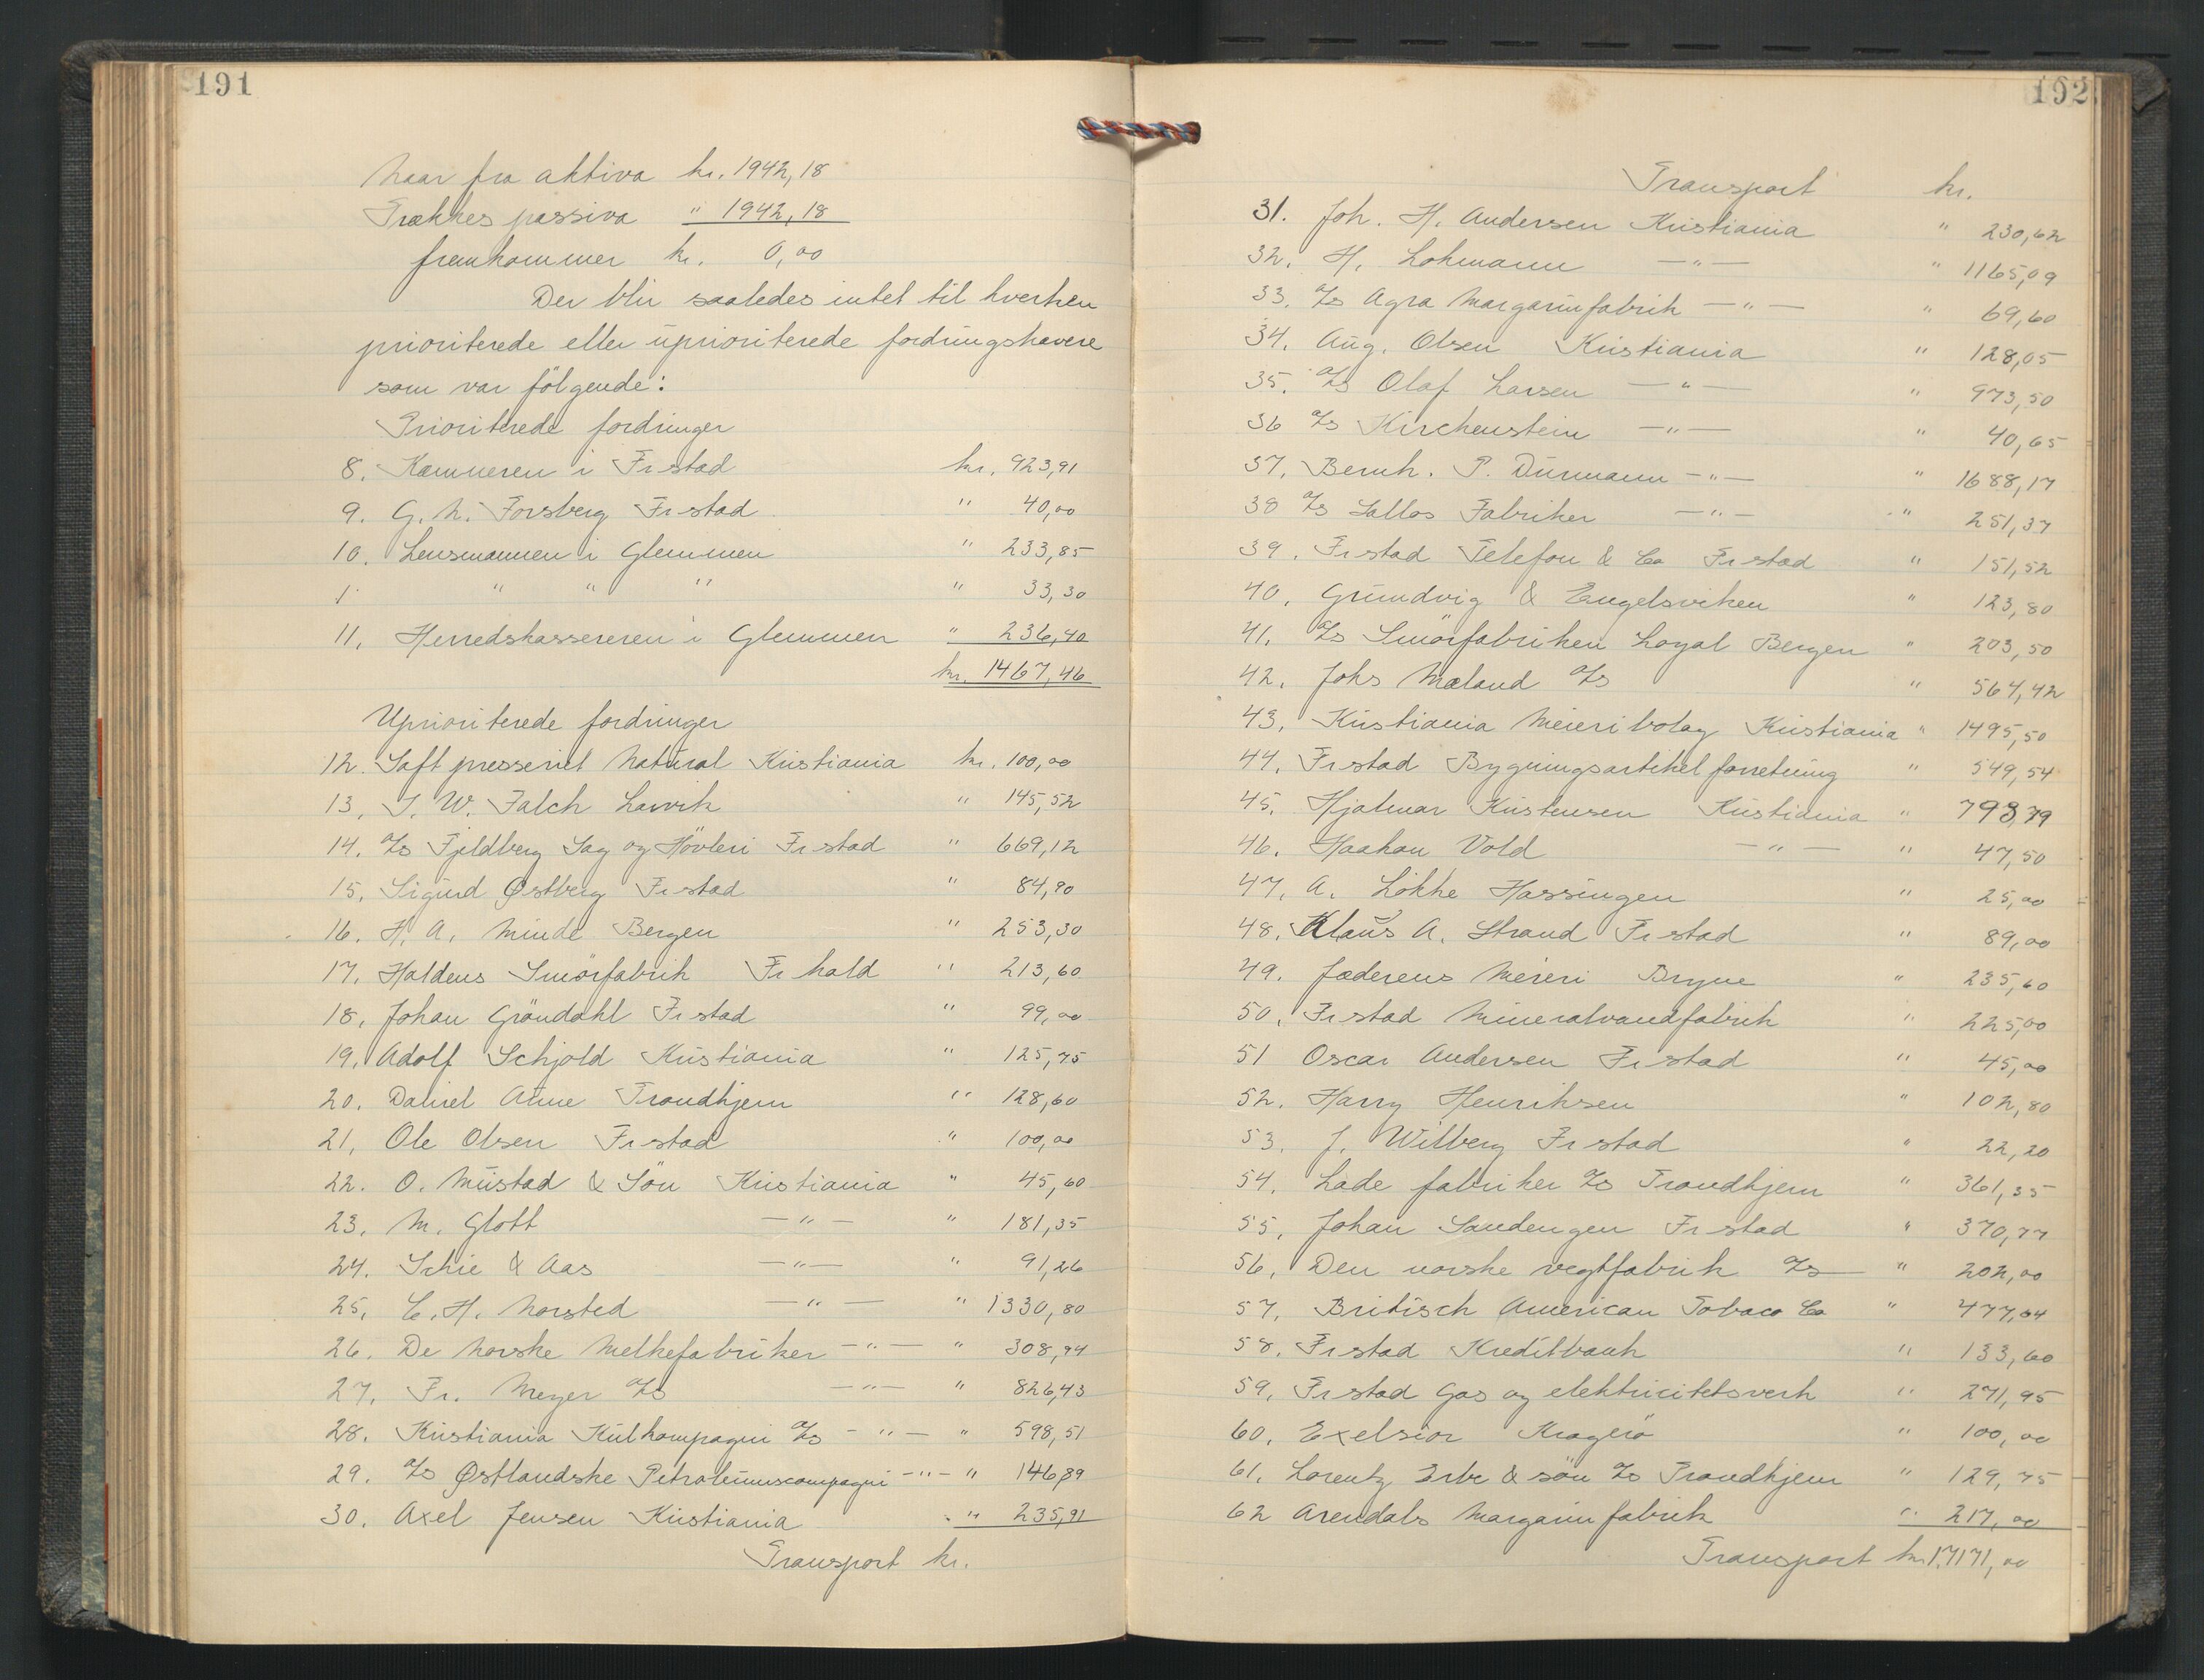 191
Naar fra aktiva kr. 1942,18
Trækkes passiva " 1942,18
fremkommer kr. 0,00
Der blir saaledes intet til hverken
prioriterede eller uprioriterede fordringshavere
som var følgende:
Prioriterede fordringer
8. Kæmneren i Fr stad kr. 923,91
9. G. N. Forsberg Fr stad " 40,00
10. Lensmannen i Glemmen " 233,85
" " " " 33,30
11. Herredskassereren i Glemmen " 236,40
kr. 1467,46
Uprioriterede fordringer
12. Saft presseriet Natural Kristiania kr. 100,00
13. J. W. Falch Larvik " 145,52
14. A/s Fjeldberg Sag og Høvleri Fr stad " 669,12
15. Sigurd Østberg Fr stad " 84,90
16. H. A. Minde Bergen " 253,30
17. Haldens Smørfabrik Fr hald " 213,60
18. Johan Grøndahl Fr stad " 99,00
19. Adolf Schjold Kristiania " 125,75
20. Daniel Aune Trondhjem " 128,60
21. Ole Olsen Fr stad " 100,00
22. O. Mustad & Søn Kristiania " 45,60
23. M. Glott — " — " 181,35
24. Schie & Aas — " — " 91,26
25. C. H. Norsted — " — " 1330,80
26. De Norske Melkefabriker — " — " 308,94
27. Fr. Meyer A/s — " — " 826,43
28. Kristiania Kulkompagni A/s — " — " 598,51
29. A/s Østlandske Petroleumscompagni — " — " 146,89
30. Axel Jensen Kristiania " 235,91
Transport kr.
192
Transport kr.
31. Joh. H. Andersen Kristiania " 230,62
32. H. Lohmann — " — " 1165,09
33. A/s Agra Margarinfabrik — " — " 69,60
34. Aug. Olsen Kristiania " 128,05
35. A/s Olaf Larsen — " — " 973,50
36 A/s Kirchenstein — " — " 40,65
37. Bernh. P. Durmann — " — " 1688,17
38 A/s Lallas Fabriker — " — " 251,37
39. Fr stad Telefon & Co Fr stad " 151,52
40. Grundvig & Engelsviken " 123,80
41. A/s Smørfabriken Loyal Bergen " 203,50
42. Johs Mæland A/s " 564,42
43. Kristiania Meieribolag Kristiania " 1495,50
44. Fr stad Bygningsartikel forretning " 549,54
45. Hjalmar Kristensen Kristiania " 793,79
46. Haakon Vold — " — " 47,50
47. A. Løkke Hassingen " 25,00
48. Klaus A. Strand Fr stad " 89,00
49. Jæderens Meieri Bryne " 235,60
50. Fr stad Mineralvandfabrik " 225,00
51 Oscar Andersen Fr stad " 45,00
52. Harry Henriksen " 102,80
53. J. Wilberg Fr stad " 22,20
54. Lade fabriker A/s Trondhjem " 361,35
55. Johan Sandengen Fr stad " 370,77
56. Den norske vegtfabrik A/s " 202,00
57. Britisch American Tobaco Co " 477,64
58. Fr stad Kreditbank " 133,60
59. Fr stad Gas og elektricitetsverk " 271,95
60. Exelsior Kragerø " 100,00
61. Lorentz Erbe & søn A/s Trondhjem " 129,75
62 Arendals Margarin fabrik " 217,00
Transport kr. 17171,00